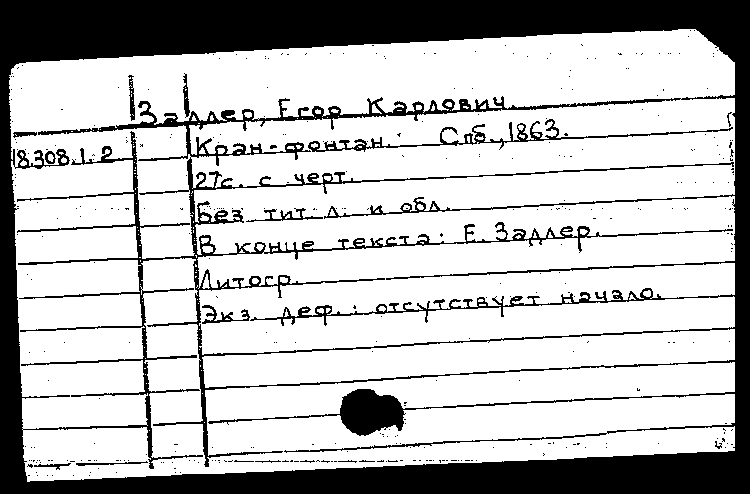 Задлер, Егор Карлович.
18.308.1.2 Кран-фонтан. Спб., 1863.
27с. с черт.
Без тит л. и обл.
В конце текста: Е. Задлер.
Литогр.
Экз. деф.: отсутствует начало.